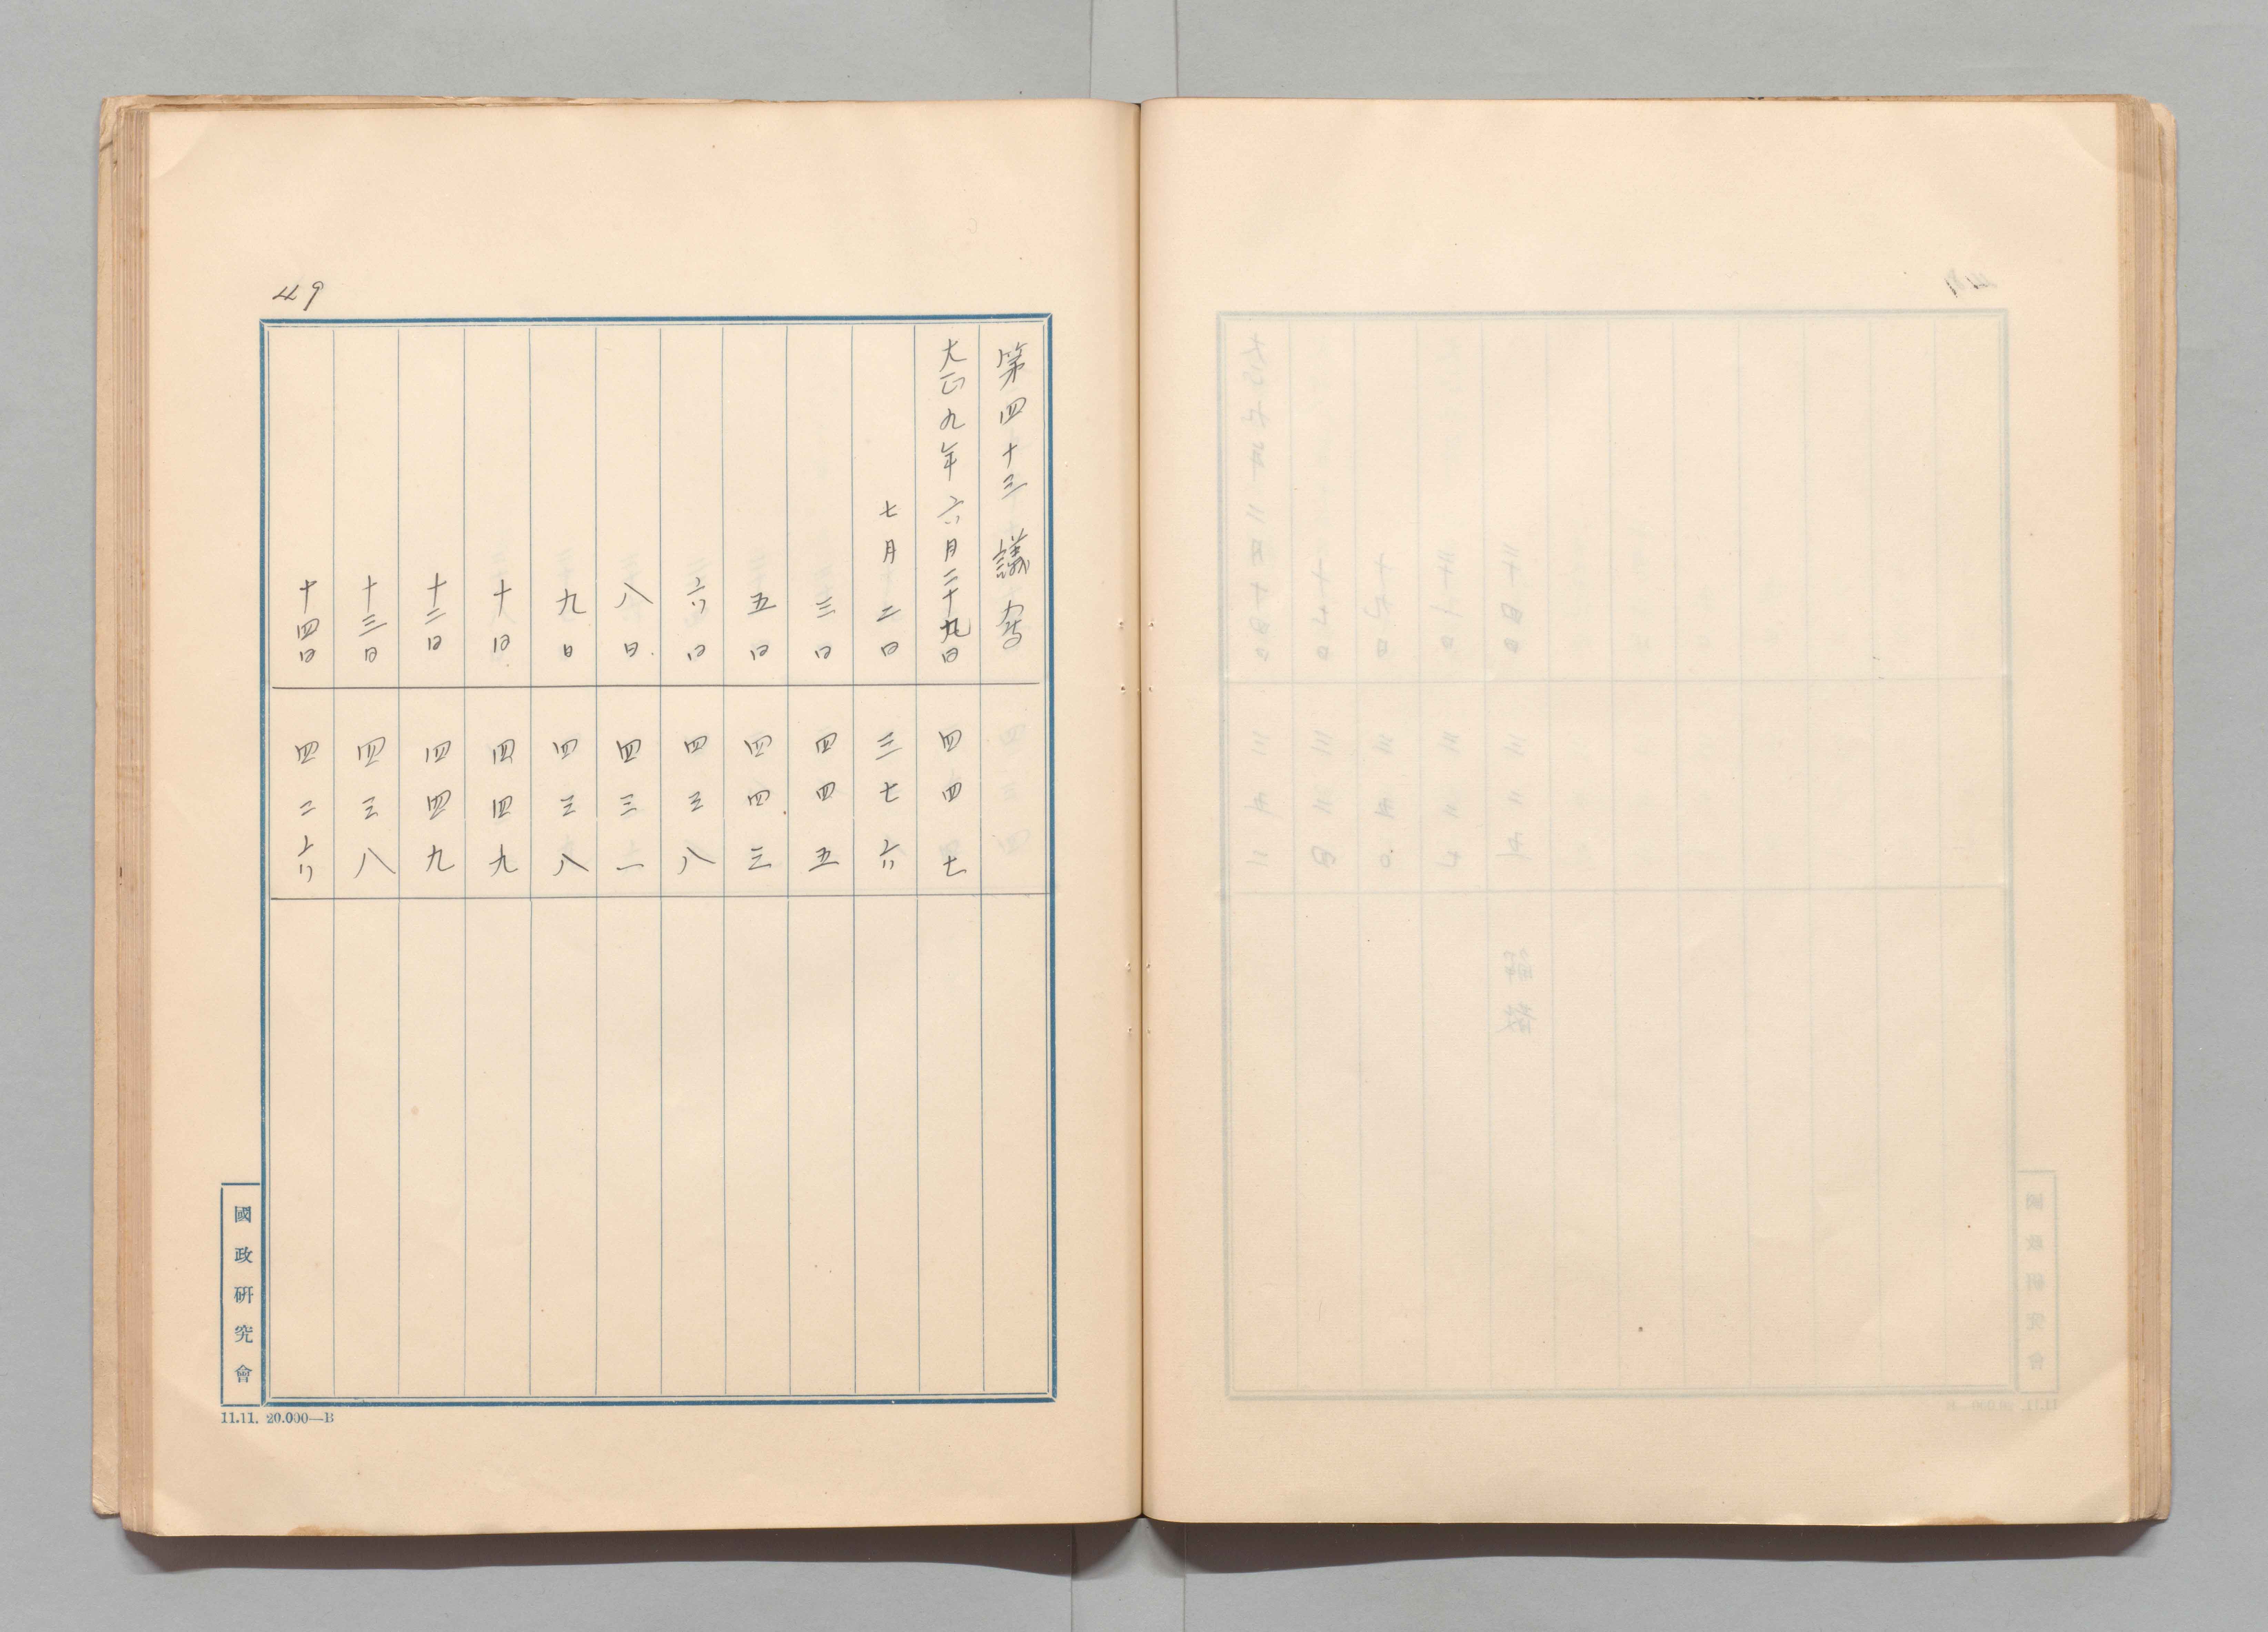 49
第四十三議会
大正九年六月二十九日 四四七
七月二日 三七六
三日 四四五
五日 四四三
六日 四三八
八日 四三一
九日 四三八
十日 四四九
十二日 四四九
十三日 四三八
十四日 四二六
國政研究會
11.11. 20.000—B